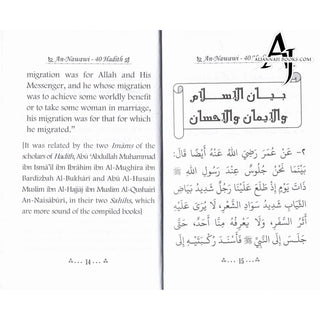 An-Nawawi - 40 Hadith
migration was for Allah and His
Messenger, and he whose migration
was to achieve some worldly benefit
or to take some woman in marriage,
his migration was for that for which
he migrated.”
[It was related by the two Imâms of the
scholars of Hadith, Abû ‘Abdullah Muhammad
ibn Ismâ‘îl ibn Ibrâhim ibn Al-Mughira ibn
Bardizbah Al-Bukhâri and Abû Al-Husain
Muslim ibn Al-Hajjâj ibn Muslim Al-Qushairi
An-Naisâbûri, in their two Sahihs, which
are more sound of the compiled books]
14
AJ
ALJANNAHBOOKS.COM
An-Nawawi - 40
بيان الإسلام
والإيمان والإحسان
٢- عَنْ عُمَرَ رَضِيَ اللهُ عَنْهُ أَيْضًا قَالَ:
بَيْنَمَا نَحْنُ جُلُوسٌ عِنْدَ رَسُولِ اللهِ ﷺ
ذَاتَ يَوْمٍ إِذْ طَلَعَ عَلَيْنَا رَجُلٌ شَدِيدُ بَيَاضِ
الثِّيَابِ شَدِيدُ سَوَادِ الشَّعْرِ، لَا يُرَى عَلَيْهِ
أَثَرُ السَّفَرِ، وَلَا يَعْرِفُهُ مِنَّا أَحَدٌ، حَتَّى
جَلَسَ إِلَى النَّبِيِّ ﷺ فَأَسْنَدَ رُكْبَتَيْهِ إِلَى
15